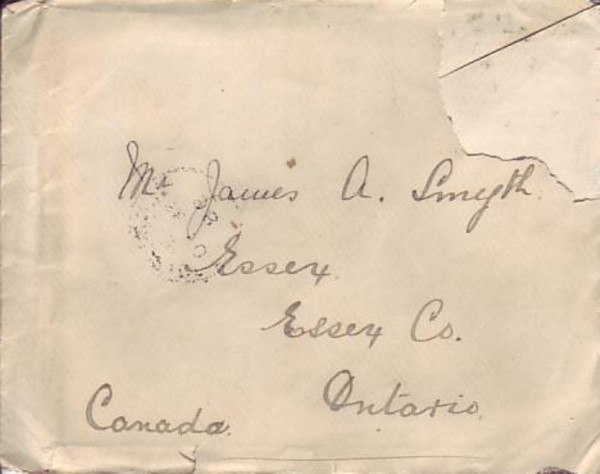 Mr James A. Smyth
Essex
Essex Co.
Ontario
Canada.